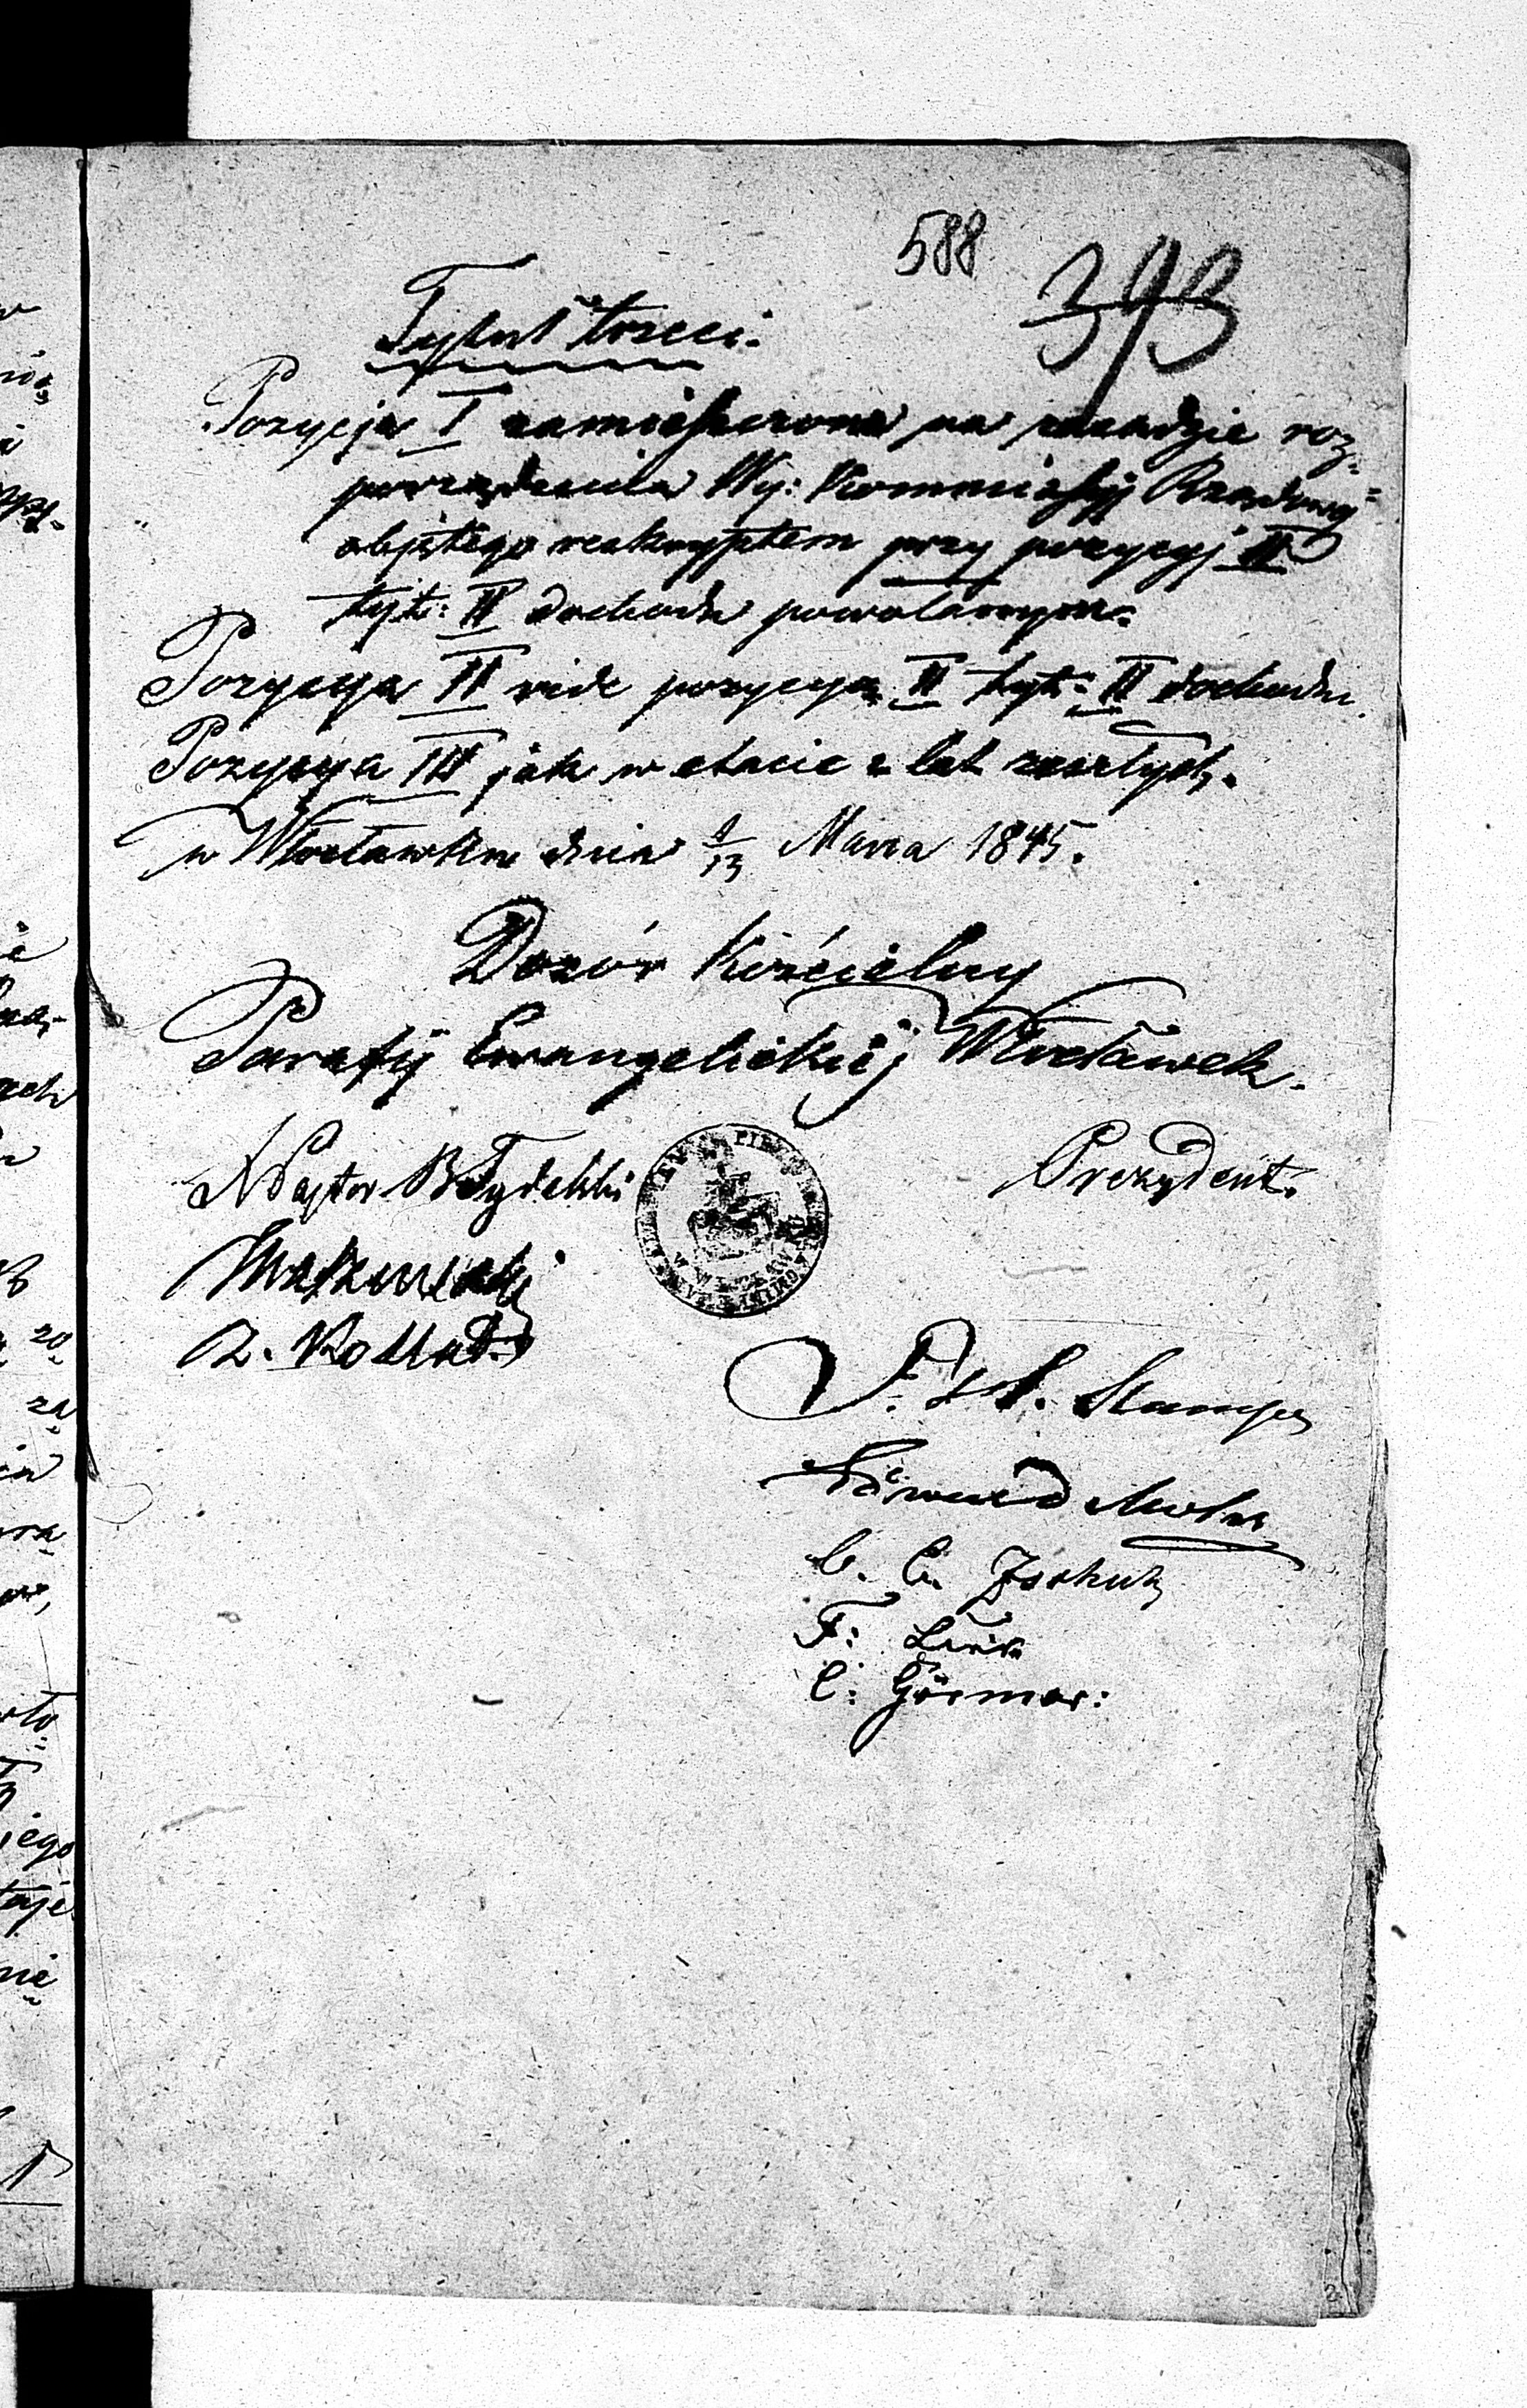 588
393
Tytuł trzeci.
Pozycja I zamieszczona na zasadzie roz=
porządzenia Wy: Kommissyj Rządowej
objętego reskryptem przy pozycyj II
tyt: II dochodu powołanym.
Pozycya II vide pozycya II tyt: II dochodu
Pozycya III jak w etacie z lat zeszłych.
w Włocławku dnia 1/13 Marca 1845.
Dozór Kościelny
Parafij Ewangelickiej Włocławek.
Pastor B Tydelski
Prezydent.
F. Stampf
Edward
C. C.
F:
C: